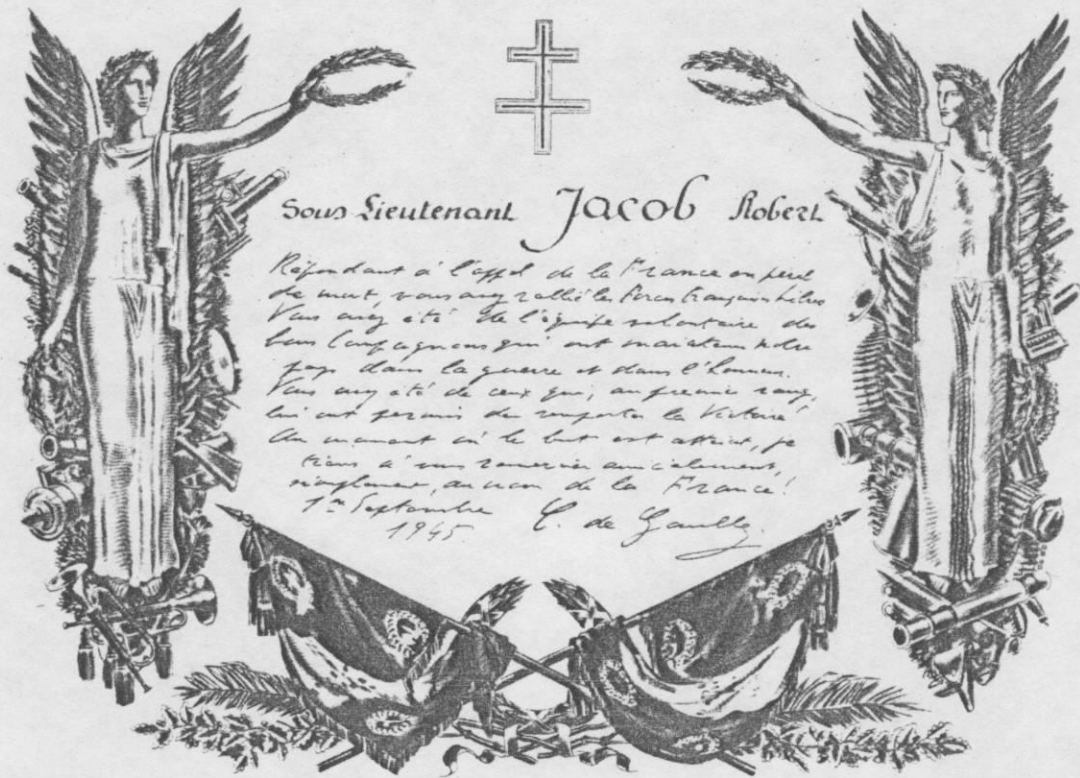 Sous Lieutenant Jacob Robert
Répondant à l'appel de la France en péril
de mort, vous avez rallié les Forces françaises libres
Vous avez été de l'équipe volontaire des
bons compagnons qui ont maintenu notre
pays dans la guerre et dans l'honneur.
Vous avez été de ceux qui, au premier rang,
lui ont permis de remporter la Victoire!
Au moment où le but est atteint, je
tiens à vous remercier amicalement,
simplement, au nom de la France!
1er Septembre
1945.
C. de Gaulle.